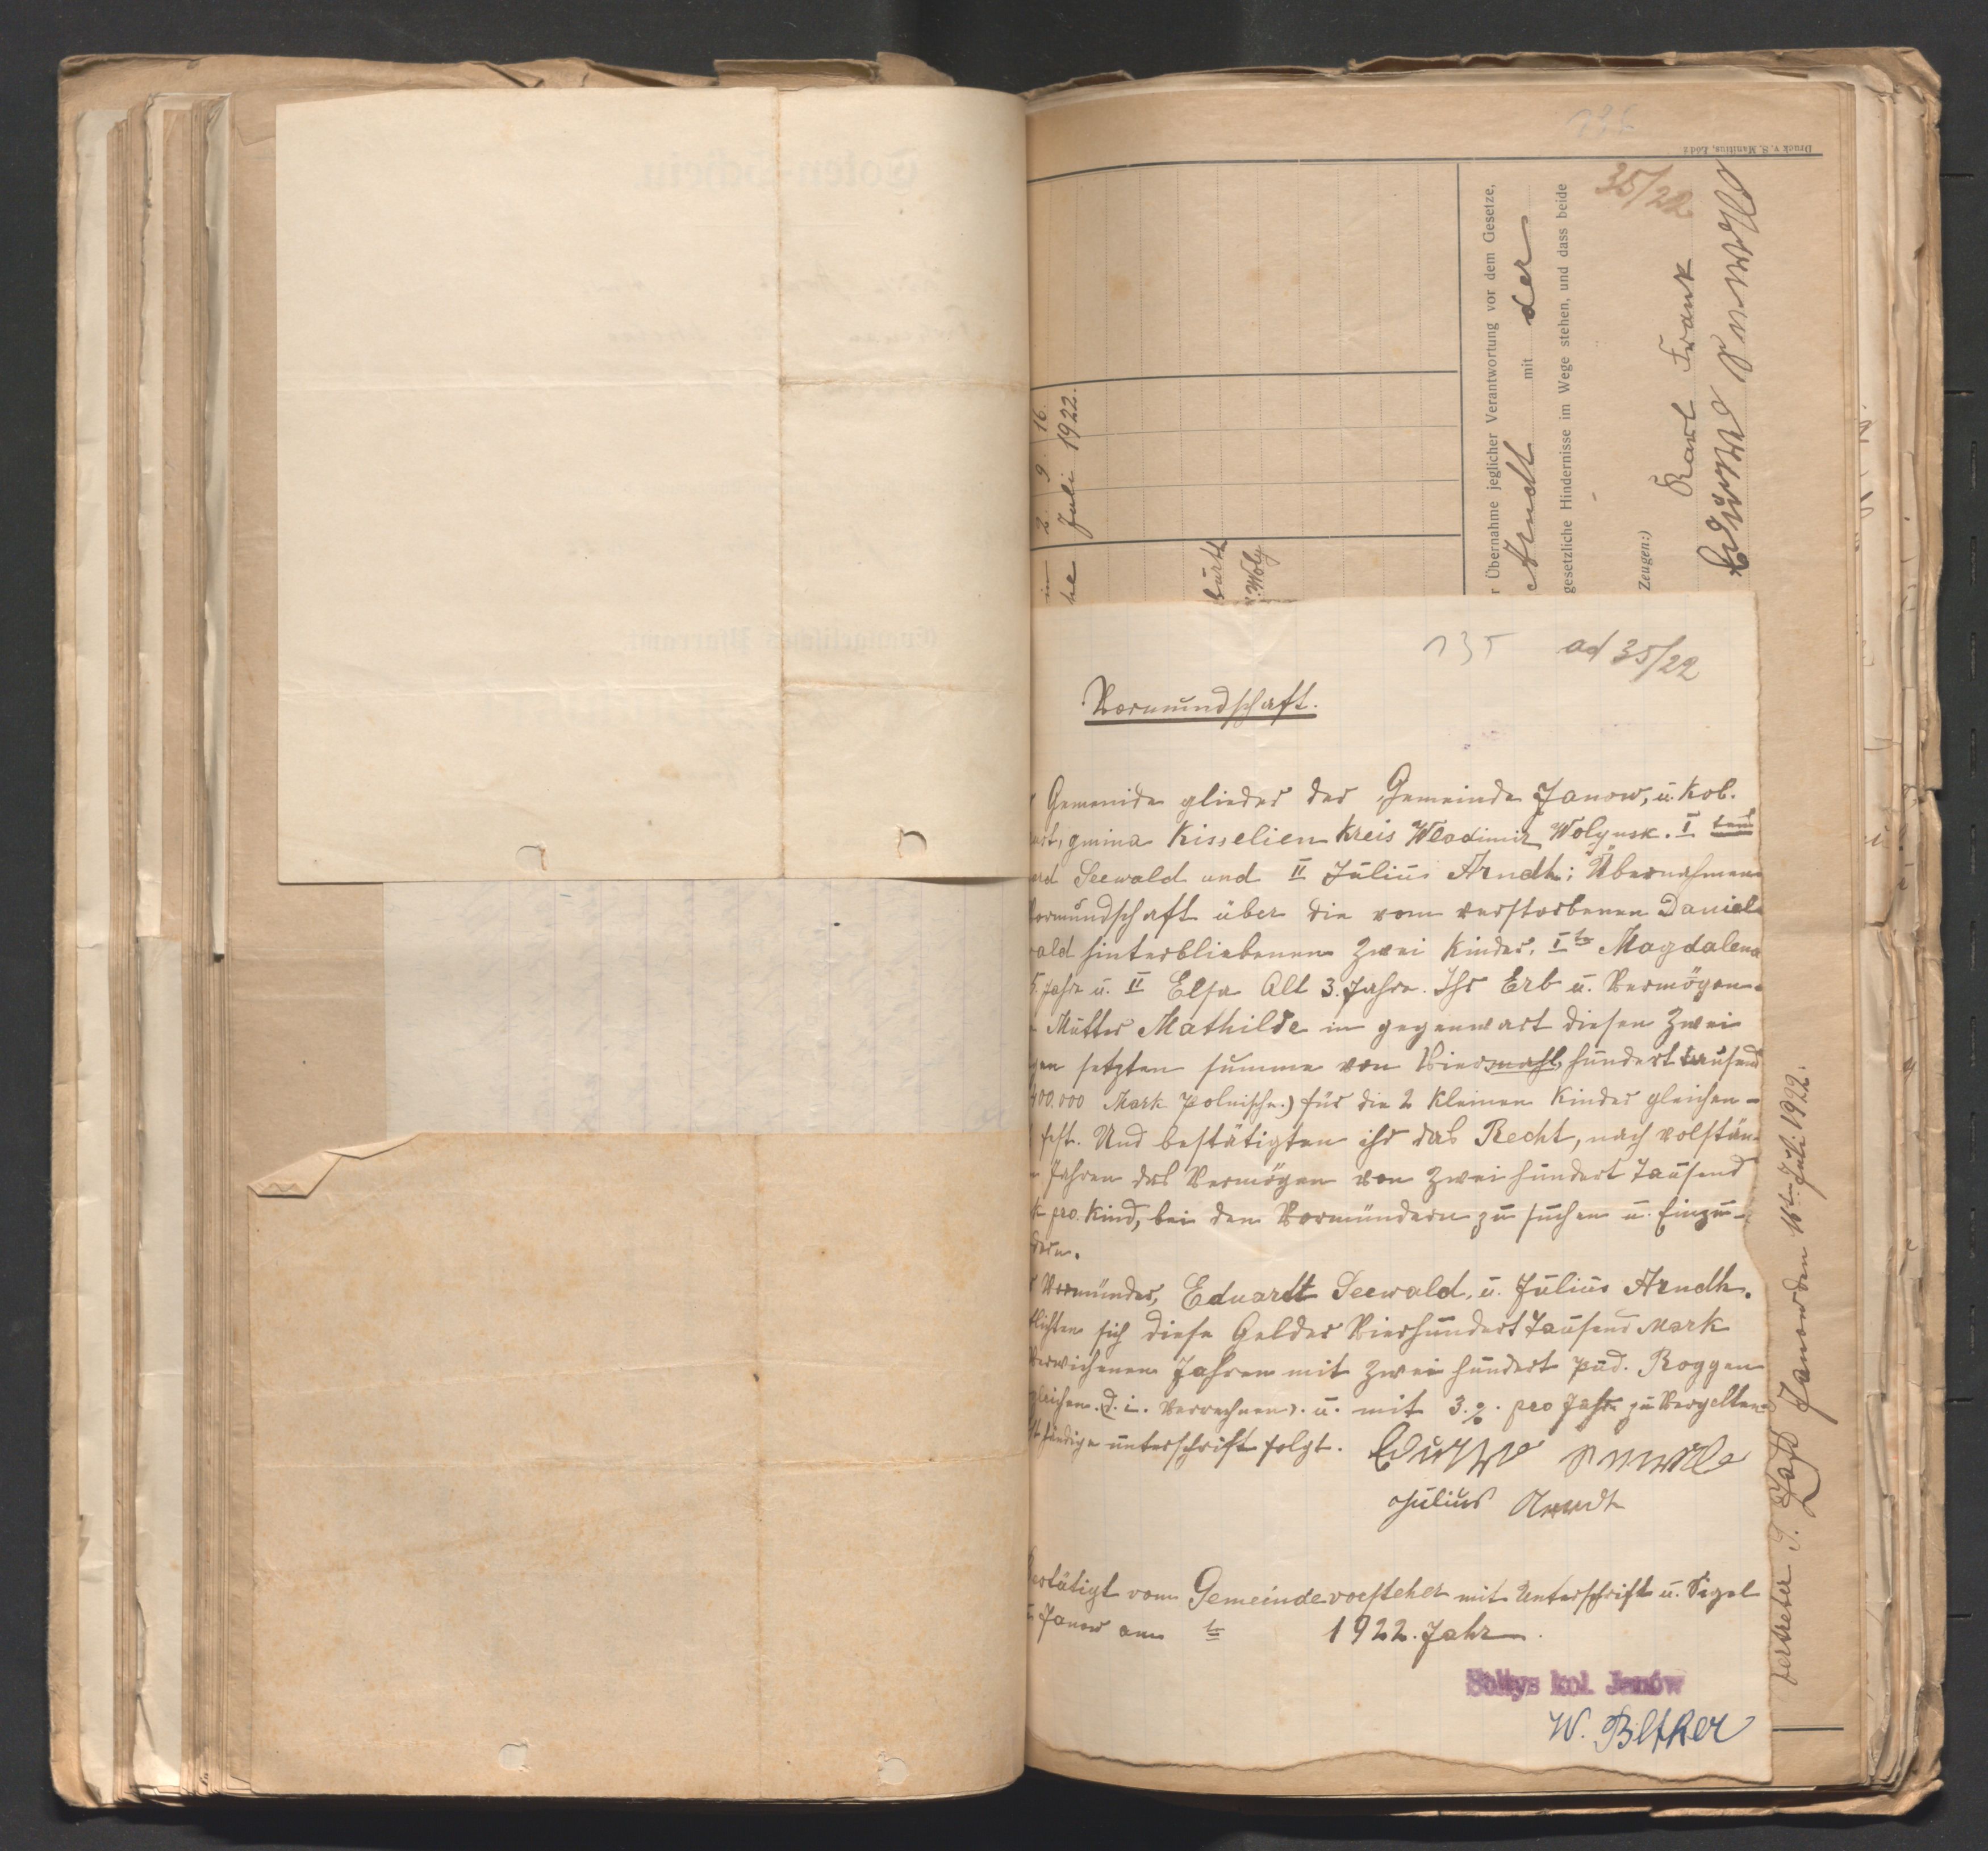 136
Druck v. S. Manitius, Łódź
2 9 16.
Juli 1922.
he
burt
Woly
r Übernahme jeglicher Verantwortung vor dem Gesetze,
Arndt mit der
gesetzliche Hindernisse im Wege stehen, und dass beide
35/22
Zeugen:)
Karl Frank
135 ad 35/22
Vormundschaft.
Gemeinde glieder der Gemeinde Janow, u. Kol.
gmina Kisselien Kreis Wladimir Wolynsk. I
Seewald und II Julius Arndt; Übernehmen
Vormundschaft über die vom verstorbenen Daniel
wald hinterbliebenen Zwei Kinder. I te Magdalena
5. Jahre u. II Elsa Alt 3. Jahre. Ihr Erb u. Vermögen
Mutter Mathilde in gegenwart diesen Zwei
gen setzten summe von Viermahl hundert tausend
400.000 Mark polnische.) für die 2 Kleinen Kinder gleichen-
fest. Und bestätigten ihr das Recht, nach volstän-
Jahren das Vermögen von Zwei hundert Tausend
k pro. Kind, bei den Vormündern zu suchen u. Einzu-
dern.
Vormünder, Eduardt Seewald, u. Julius Arndt.
flichten sich diese Gelder Vierhundert Tausend Mark
Verwichenen Jahren mit Zwei hundert pud. Roggen
gleichen. (d. i. Verrechnen). u. mit 3. %. pro Jahr zu Vergelten
händige unterschrift folgt.
Julius Arndt
Bestätigt vom Gemeindevorsteher mit Unterschrift u. Sigel
Janow am te 1922. Jahr
Sołtys kol. Janów
W. Bethker
vertreter J. Janow den 16ten Juli 1922.